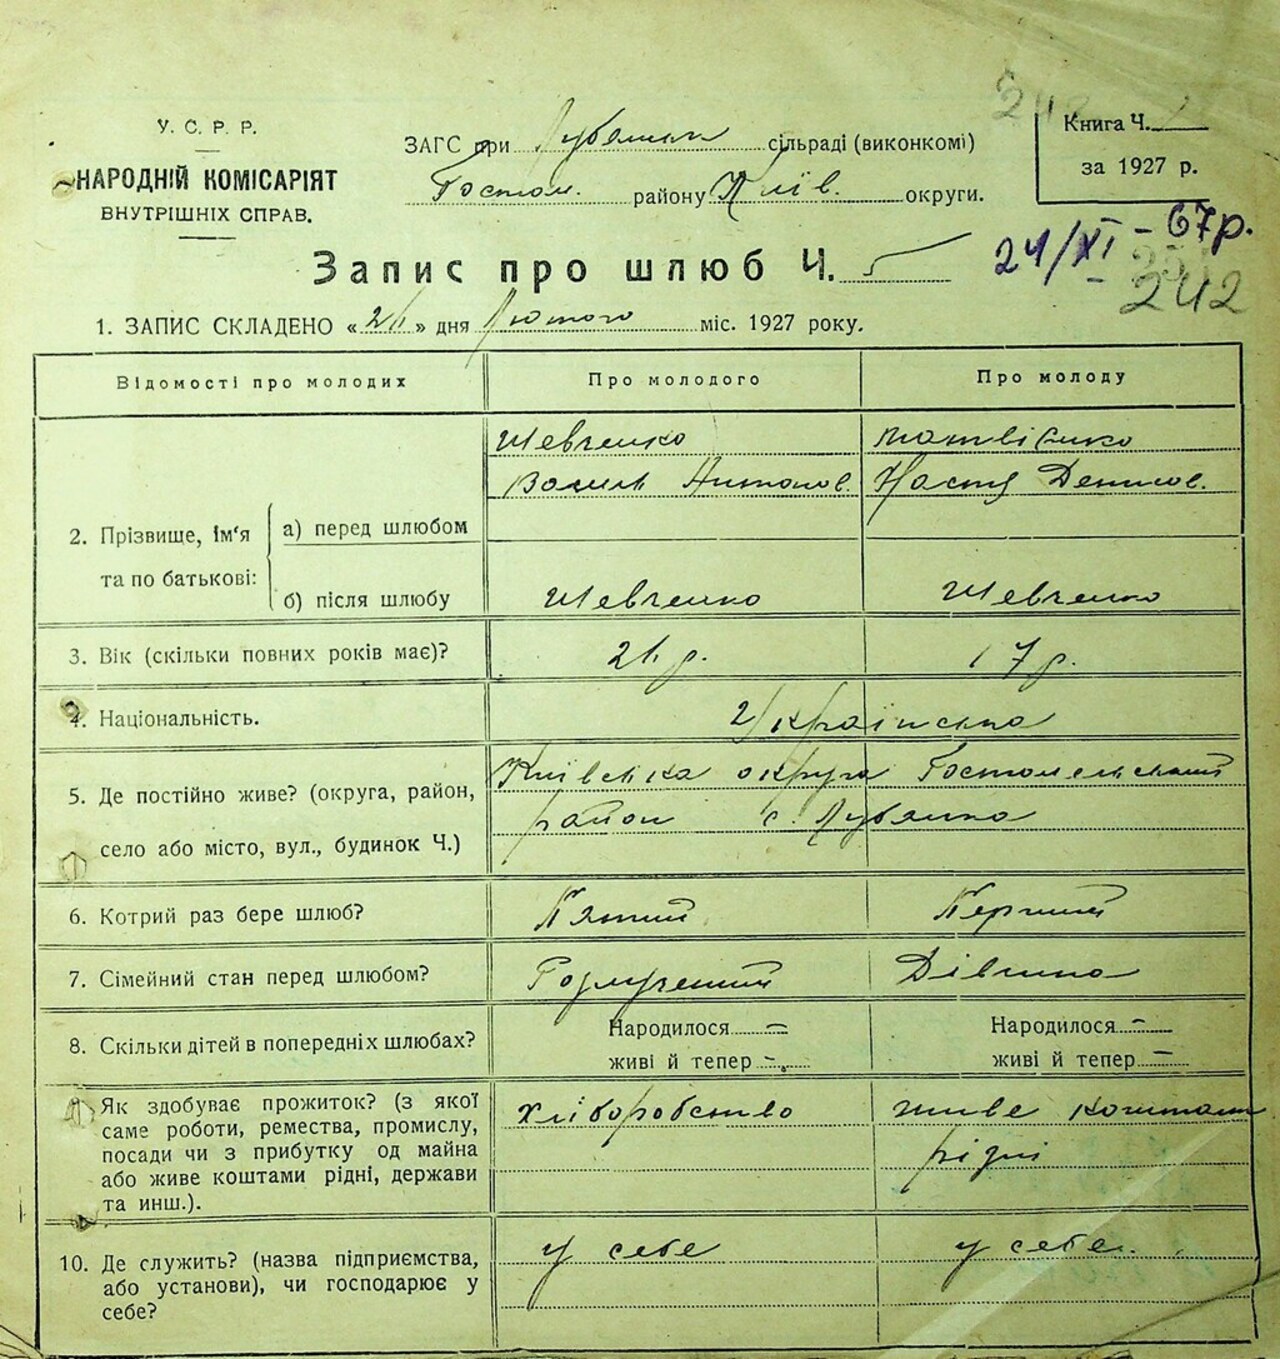 У. С. Р. Р.
НАРОДНІЙ КОМІСАРІЯТ
ВНУТРІШНІХ СПРАВ.
ЗАГС при Лубянськ сільраді (виконкомі)
Гостом. району Київ. округи.
Книга Ч.
за 1927 р.
24/XI - 67р.
242
Запис про шлюб Ч. 5
1. ЗАПИС СКЛАДЕНО « » дня Лютого міс. 1927 року.
Відомості про молодих Про молодого Про молоду
Шевченко Матвієнко
Василь Антонов. Настя Денисов.
2. Прізвище, ім'я та по батькові:
а) перед шлюбом
б) після шлюбу Шевченко Шевченко
3. Вік (скільки повних років має)? 21 р. 17 р.
4. Національність. Українська
5. Де постійно живе? (округа, район, село або місто, вул., будинок Ч.)
Київська округа Гостомельський
район с. Лубянка
6. Котрий раз бере шлюб? Пятий Перший
7. Сімейний стан перед шлюбом? Розлучений Дівчина
8. Скільки дітей в попередніх шлюбах?
Народилося — Народилося —
живі й тепер — живі й тепер —
9. Як здобуває прожиток? (з якої
саме роботи, ремества, промислу,
посади чи з прибутку од майна
або живе коштами рідні, держави
та инш.).
хліборобство живе коштами
рідні
10. Де служить? (назва підприємства,
або установи), чи господарює у
себе?
у себе у себе.